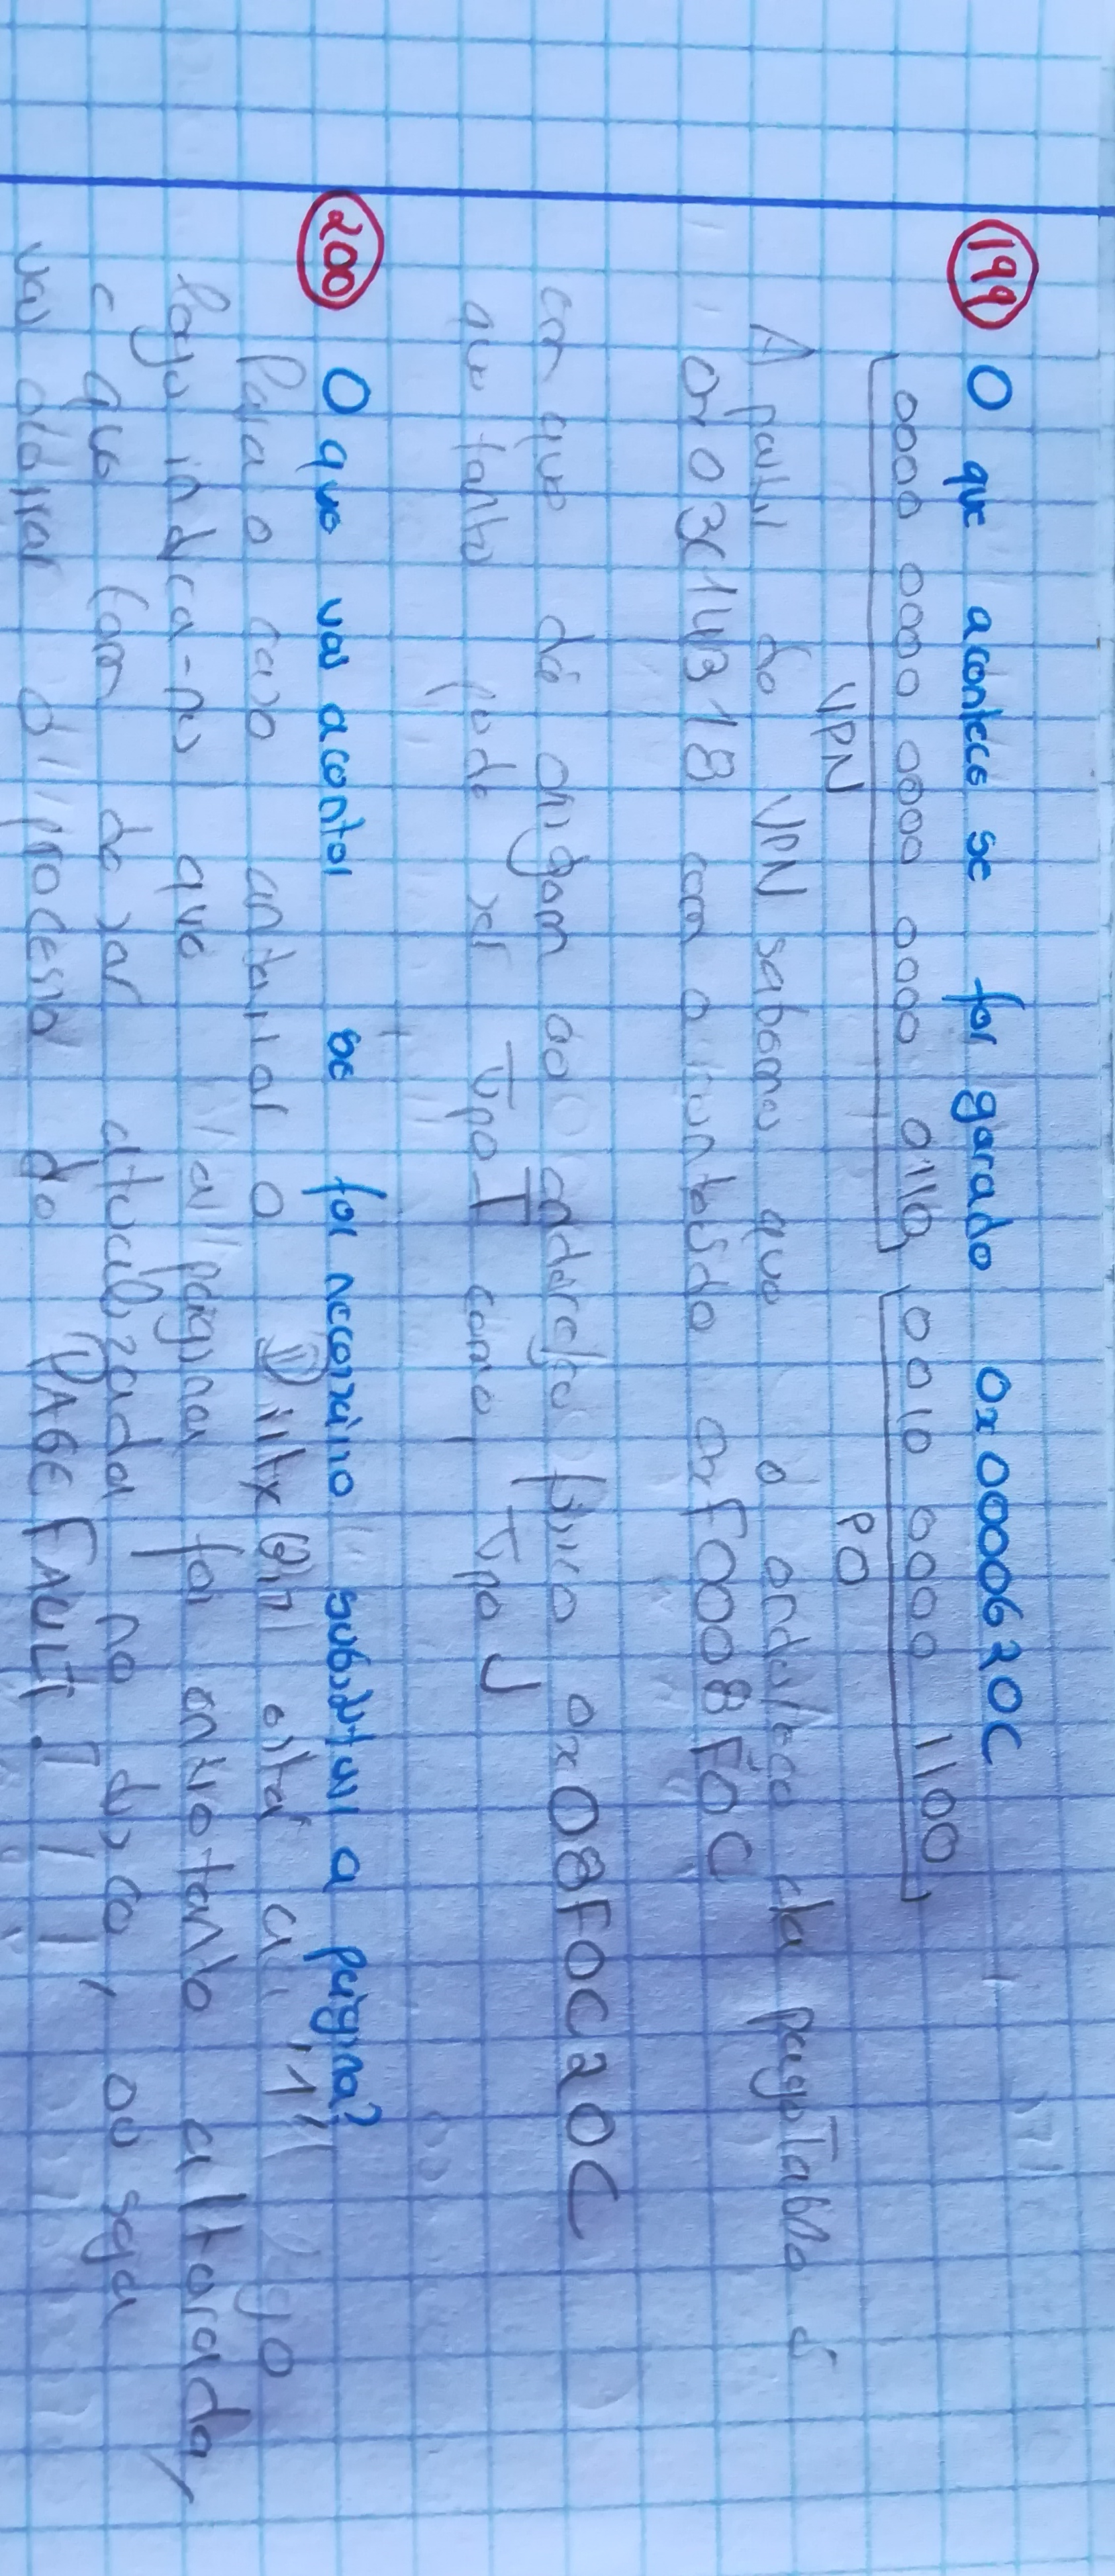 199 O que acontece se for gerado 0x0000620C
0000 0000 0000 0000 0110 0010 0000 1100
VPN PO
A partir do VPN sabemos que o endereço da pageTable é
0x03C14318 com o conteúdo 0xF0008F0C
em que dá origem ao endereço físico 0x08F0C20C
que tanto pode ser Tipo I como Tipo J
200 O que vai aconter se for necessário substituir a página?
Para o caso anterior o Dirty Bit está a '1'
logo indica-nos que a página foi entretanto alterada,
e que tem de ser atualizada no disco, ou seja
vai ocorrer o processo de PAGE FAULT!!!